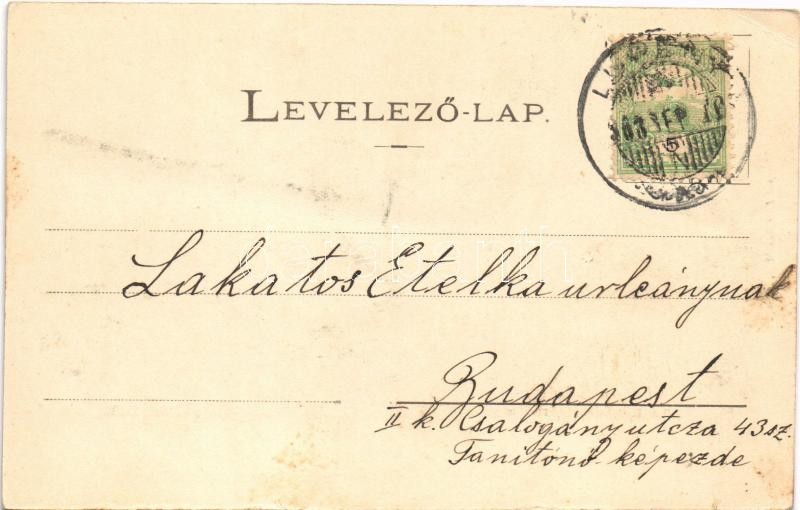 LEVELEZŐ-LAP.
Lakatos Etelka urleánynak
Budapest
II k. Csalogány utcza 43 sz.
Tanitónő képezde